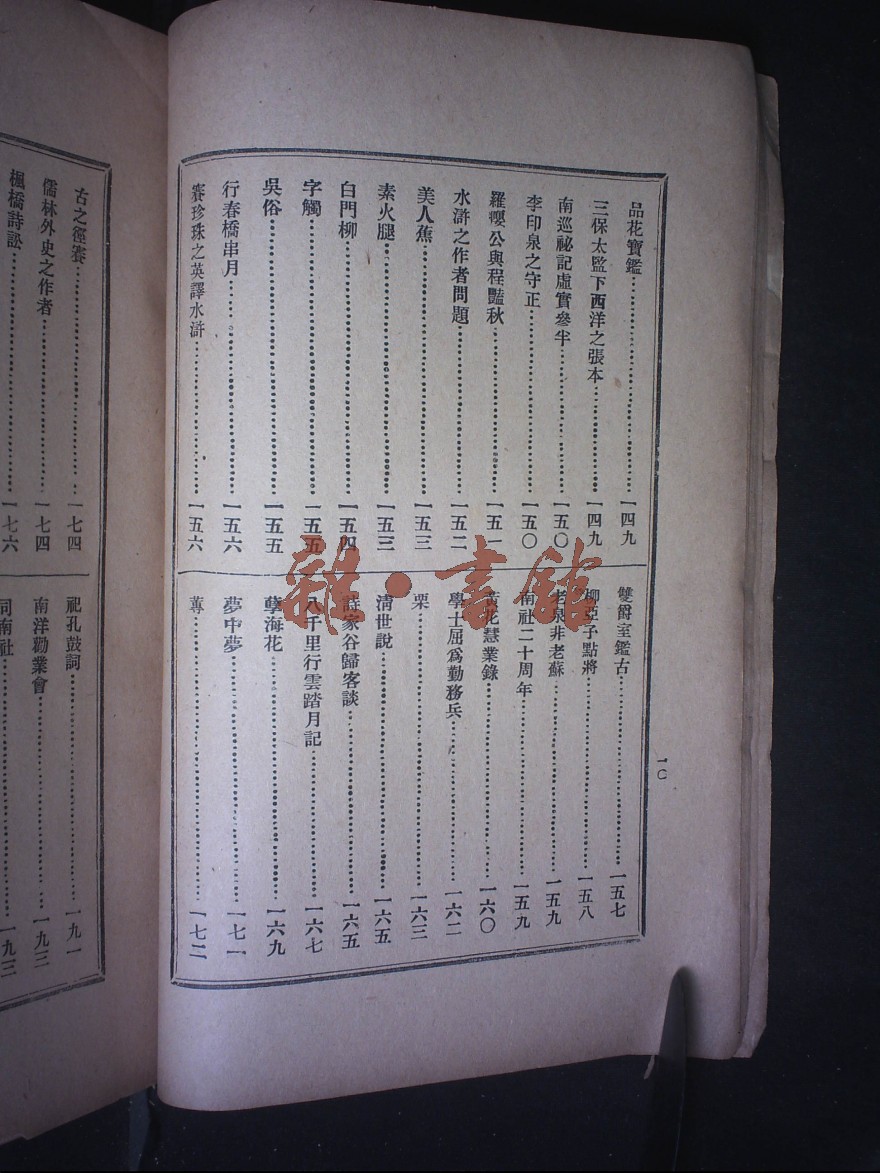 品花寶鑑⋯⋯一四九
三保太監下西洋之張本⋯⋯一四九
南巡祕記虛實參半⋯⋯一五〇
李印泉之守正⋯⋯一五〇
羅癭公與程豔秋⋯⋯一五一
水滸之作者問題⋯⋯一五二
美人蕉⋯⋯一五三
素火腿⋯⋯一五三
白門柳⋯⋯一五四
字觸⋯⋯一五五
吳俗⋯⋯一五五
行春橋串月⋯⋯一五六
賽珍珠之英譯水滸⋯⋯一五六
雙爵室鑑古⋯⋯一五七
柳亞子點將⋯⋯一五八
老泉非老蘇⋯⋯一五九
南社二十周年⋯⋯一五九
黃花慧業錄⋯⋯一六〇
學士屈爲勤務兵⋯⋯一六二
栗⋯⋯一六三
清世說⋯⋯一六五
詩家谷歸客談⋯⋯一六五
八千里行雲踏月記⋯⋯一六七
孽海花⋯⋯一六九
夢中夢⋯⋯一七一
蓴⋯⋯一七二
一〇
古之徑賽⋯⋯一七四
儒林外史之作者⋯⋯一七四
楓橋詩訟⋯⋯一七六
祀孔鼓詞⋯⋯一九一
南洋勸業會⋯⋯一九三
同南社⋯⋯一九三
雜·書館